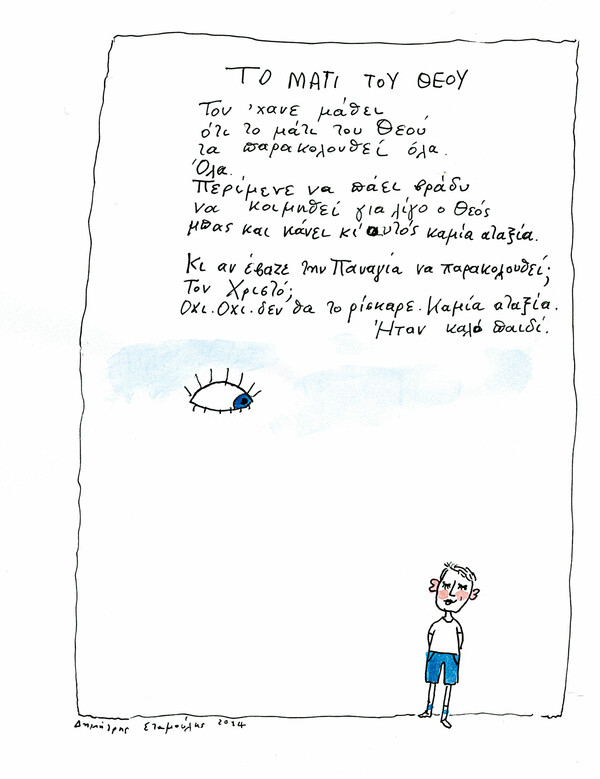 ΤΟ ΜΑΤΙ ΤΟΥ ΘΕΟΥ
Τον 'χανε μάθει
ότι το μάτι του Θεού
τα παρακολουθεί όλα.
Όλα.
Περίμενε να πάει βράδυ
να κοιμηθεί για λίγο ο Θεός
μπας και κάνει κι αυτός καμία αταξία.
Κι αν έβαζε την Παναγία να παρακολουθεί;
Τον Χριστό;
Όχι. Όχι. δεν θα το ρίσκαρε. Καμία αταξία.
Ήταν καλό παιδί.
Δημήτρης Σταμούλης 2024